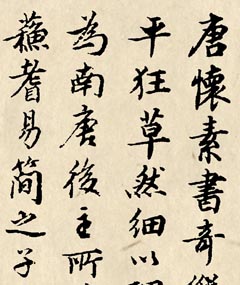 唐懷素書奇縱
平狂草然細以
為南唐後主所
蘇耆易簡之子